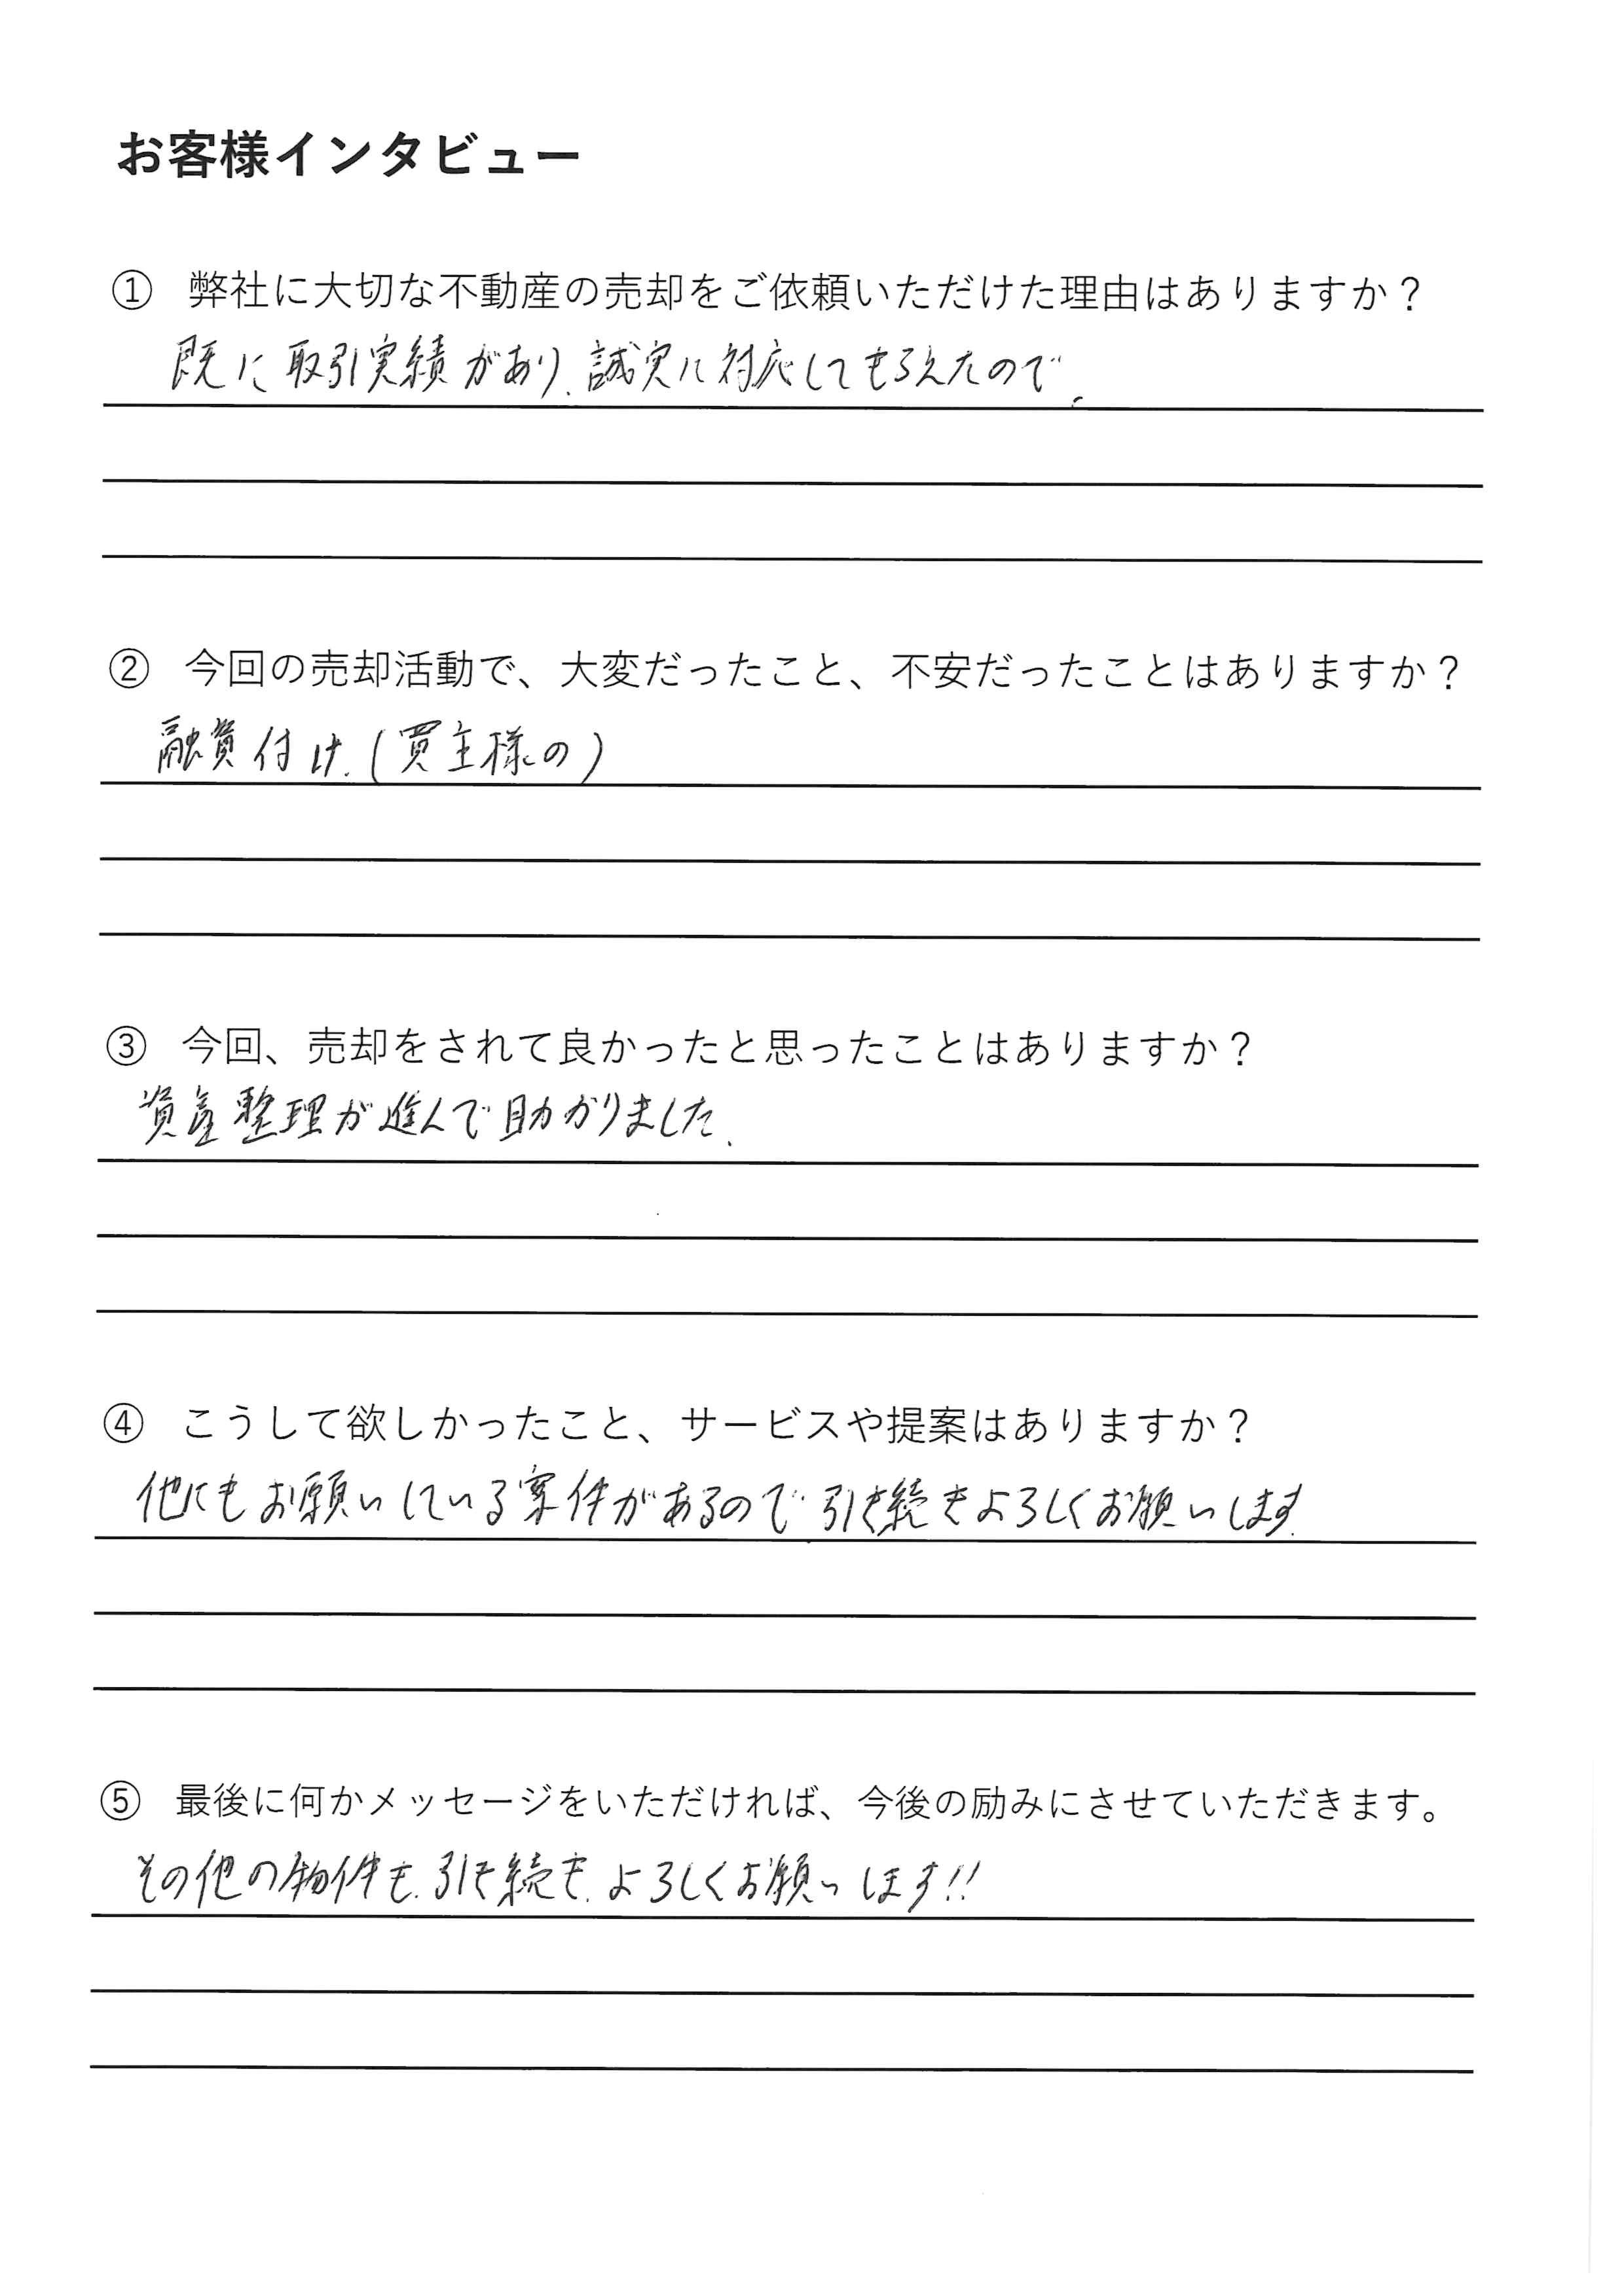 お客様インタビュー
① 弊社に大切な不動産の売却をご依頼いただけた理由はありますか？
既に取引実績があり、誠実に対応してもらえたので。
② 今回の売却活動で、大変だったこと、不安だったことはありますか？
融資付け。(買主様の)
③ 今回、売却をされて良かったと思ったことはありますか？
資産整理が進んで助かりました。
④ こうして欲しかったこと、サービスや提案はありますか？
他にもお願いしている案件があるので引き続きよろしくお願いします。
⑤ 最後に何かメッセージをいただければ、今後の励みにさせていただきます。
その他の物件も、引き続き、よろしくお願いします!!